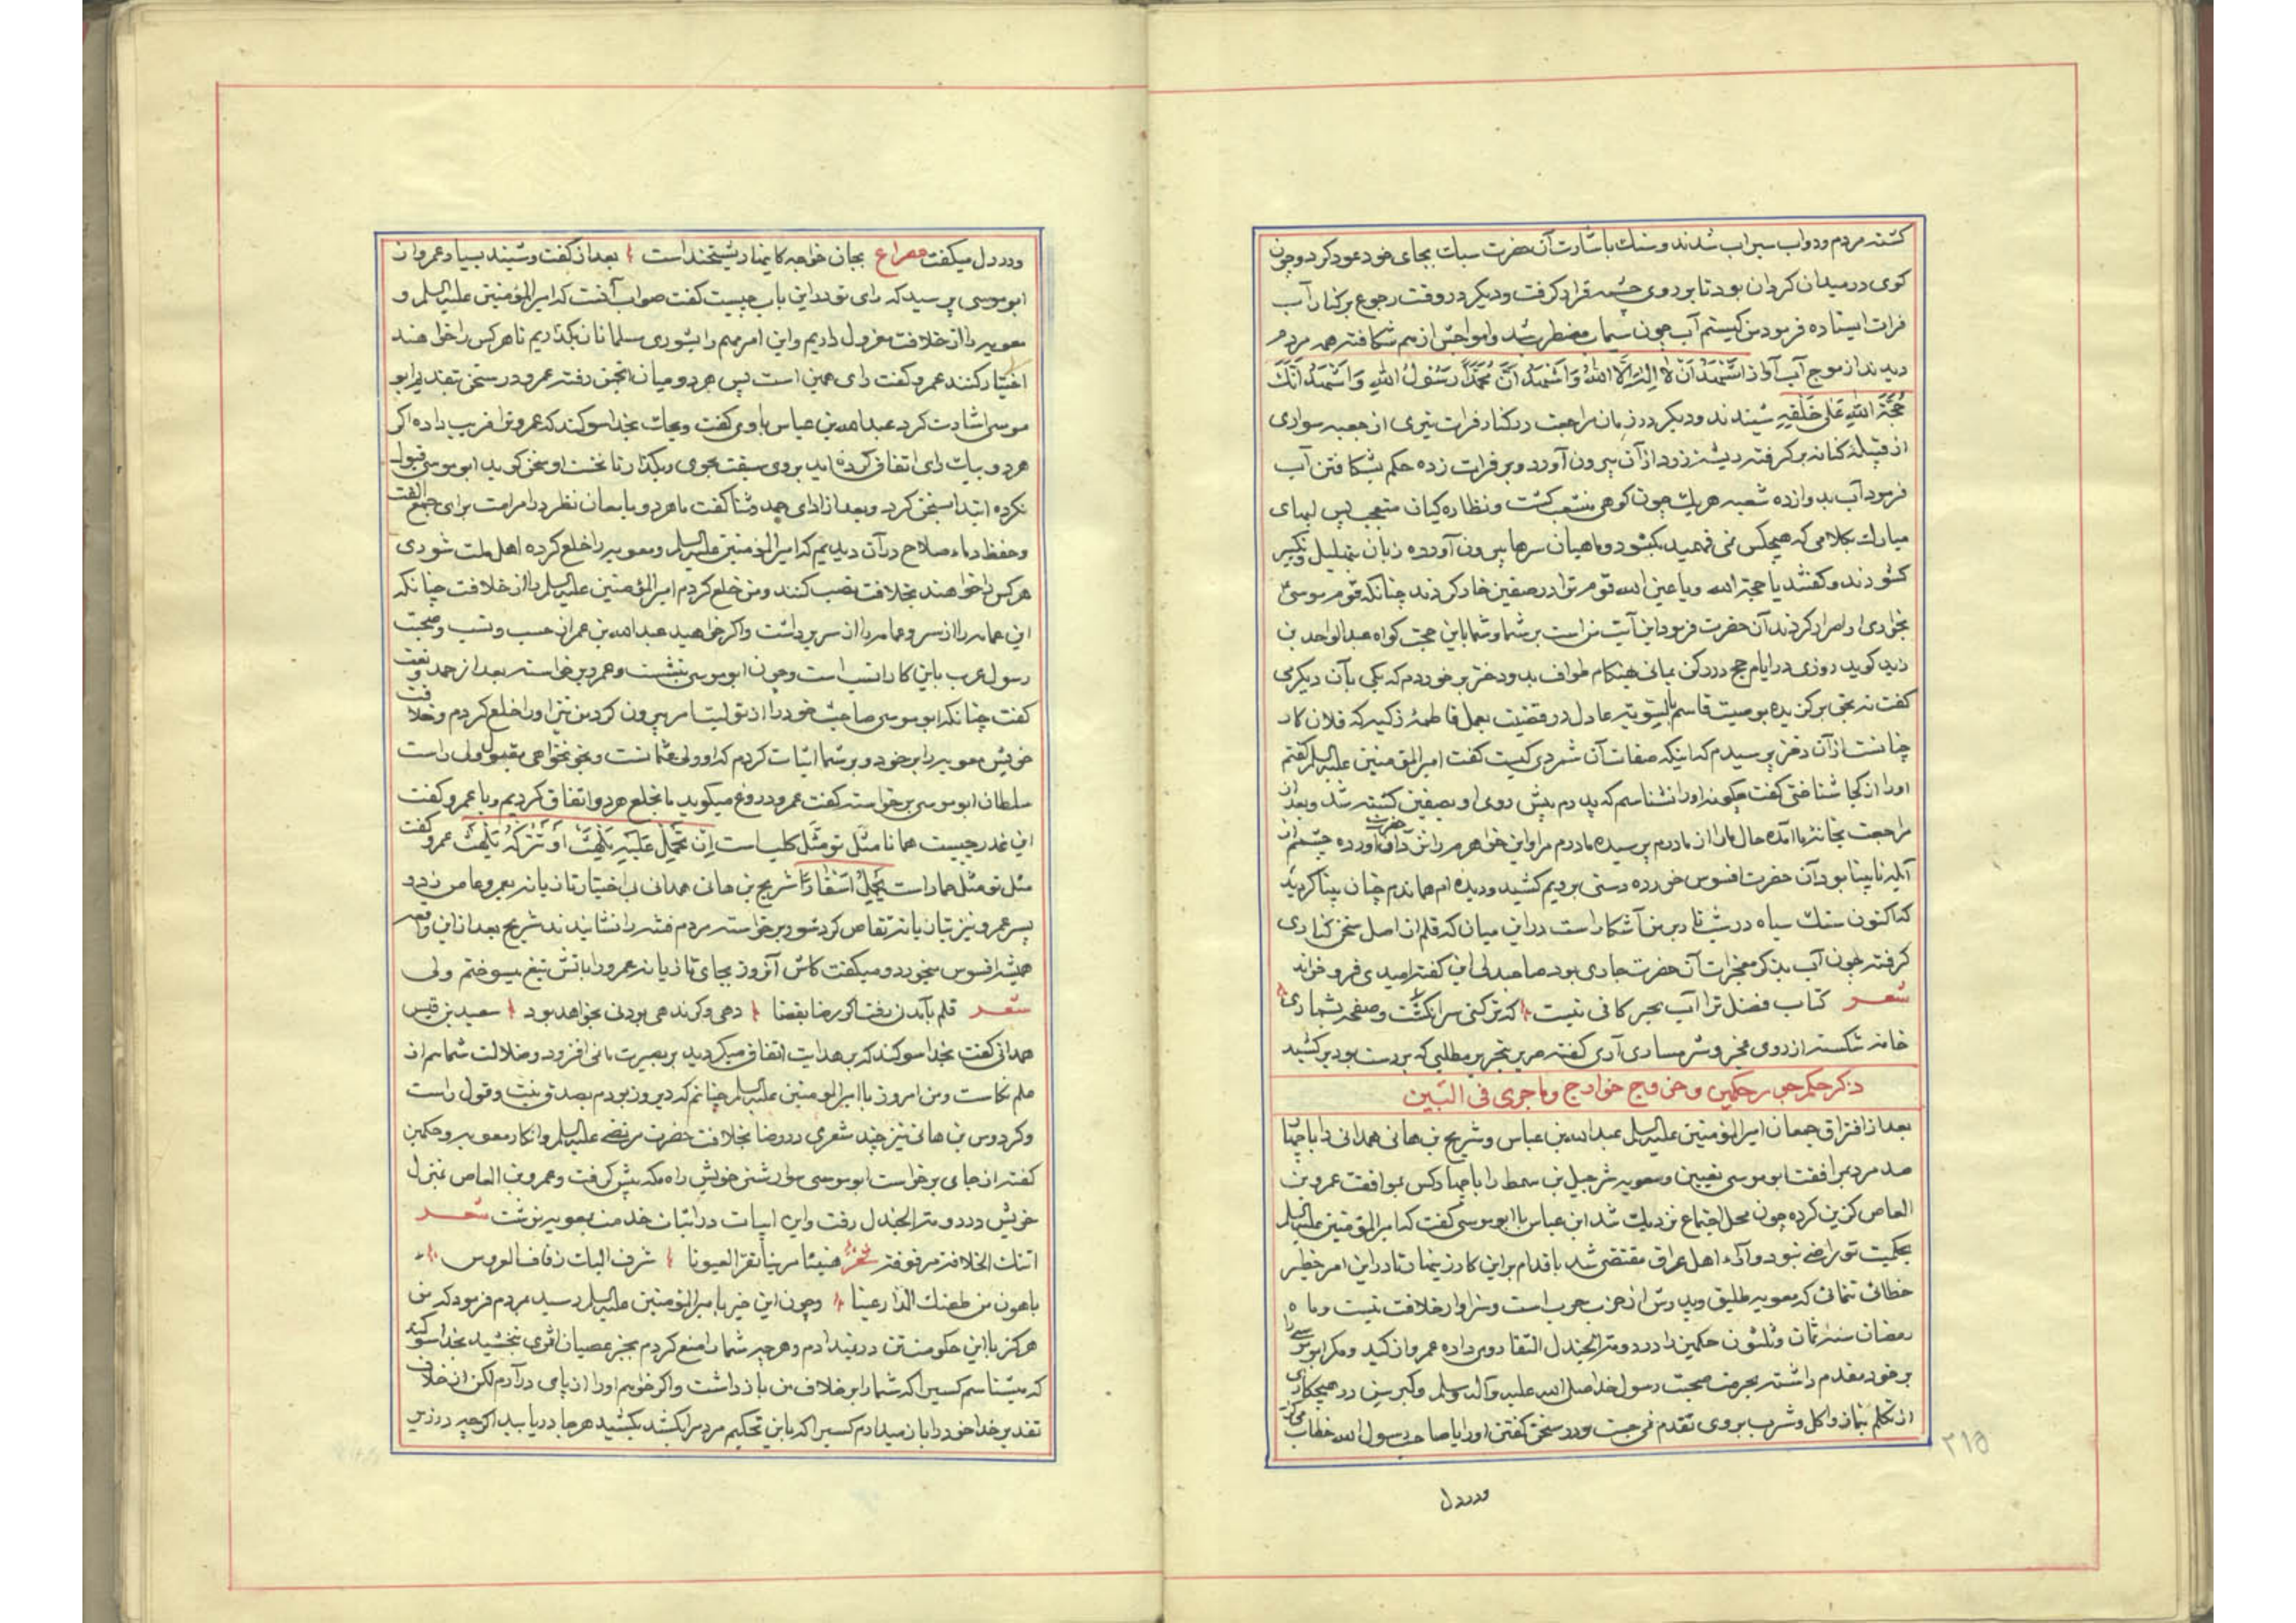 کشته مردم ودواب سیراب شدند وسنك باشارت آن حضرت سبات بجای خود عود کرد وچون
کوی در میدان کردان بود تا بر روی چشمه قرار کرفت ودیکر در وقت رجوع بر کنار آب
فرات ایستاده فرمود من کیستم آب چون سیماب مضطرب شد وامواجش از هم شکافته همه مردم
دیدند از موج آب آواز اَشْهَدُ اَنْ لا اِلهَ اِلَّا اللهُ وَاَشْهَدُ اَنَّ مُحَمَّدًا رَسُولُ اللهِ وَاَشْهَدُ اَنَّكَ
حُجَّةُ اللهِ عَلی خَلْقِهِ شنیدند ودیکر در زمان مراجعت در کنار فرات تیری از جعبه سواری
از قبیله کنانه بر کرفته ریشه زرد از آن بیرون آورد وبر فرات زده حکم بشکافتن آب
فرمود آب بدوازده شعبه هریك چون کوهی منشعب کشت ونظاره کیان متعجب پس لبهای
مبارك بکلامی که هیچکس نمی فهمید بکشود وماهیان سرها بیرون آورده زبان بتهلیل وتکبیر
کشودند وکفتند یا حجة الله ویا عین الله قوم ترا در صفین خار کردند چنانکه قوم موسی
بخواری او اصرار کردند آن حضرت فرمود این آیت من است بر شما وشما باین حجت کواه عبدالواحد بن
زید کوید روزی در ایام حج در رکن یمانی هنکام طواف بدو دختر بر خوردم که یکی بآن دیکر می
کفت نه بحق برکزیده بوصیت قاسم بالسویه عادل در قضیت بعل فاطمه زکیه که فلان کار
چنانست از آن دختر پرسیدم که اینکه صفات آن شمردی کیست کفت امیرالمؤمنین علیه السلم کفتم
اورا از کجا شناختی کفت چکونه اورا نشناسم که پدرم پیش روی او بصفین کشته شد وبعد از
مراجعت بخانه ما آمده حال ما را از مادرم پرسیده مادرم مرا واین خواهرم را نزد آن حضرت آورده چشمم از
آبله نابینا بود آن حضرت افسوس خورده دستی بر دیم کشید ودیده ام هماندم چنان بینا کردید
که اکنون سنك سیاه در شب تار بر من آشکار است در این میان که قلم از اصل سخن کناری
کرفته چون آب بذکر معجزات آن حضرت جاری بود صاحبدلی این کفته امیدی فرو خواند
شعر کتاب فضل ترا آب بحر کافی نیست که تر کنی سر انکشت وصفحه بشماری
خامه شکسته از روی عجز وشرمساری آری کفته سر بر بتحریر مطلبی که بر دست بود بر کشید
ذکر حکم جور حکمین وخروج خوارج وماجری فی البین
بعد از افتراق جمعان امیرالمؤمنین علیه السلم عبدالله بن عباس وشریح بن هانی همدانی را با چهار
صد مرد بمرافقت ابوموسی تعیین ومعویه شرجیل بن سمط را با چهارکس بموافقت عمرو بن
العاص کزین کرده چون محل اجتماع نزدیك شد ابن عباس با ابوموسی کفت که امیرالمؤمنین علیه السلم
بحکمیت تو راضی نبود وآراء اهل عراق مقتضی شد باقدام بر این کار زینهار تا در این امر خطیر
خطائی ننمائی که معویه طلیق وپدرش از حزب حرب است وسزاوار خلافت نیست وماه
رمضان سنه ثمان وثلثون حکمین را در دومة الجندل التقا روی داده عمرو از کید ومکر ابوموسی را
بر خود مقدم داشته بحرمت صحبت رسول خدا صلی الله علیه وآله وسلم وکبر سن در هیچکاری
از تکلم بنماز واکل وشرب بر وی تقدم نمی جست ودر سخن کفتن اورا یا صاحب رسول الله خطاب میکرد
۲۱۵
ودردل
ودردل میکفت مصراع بجان خواجه کاینها ریشخند است بعد از کفت وشنید بسیار عمرو از
ابوموسی پرسید که رای تو در این باب چیست کفت صواب آنست که امیرالمؤمنین علیه السلم و
معویه را از خلافت معزول داریم واین امر مهم را بشوری مسلمانان بکذاریم تا هر کس را خواهند
اختیار کنند عمرو کفت رای همین است پس هر دو میان انجمن رفته عمرو در سخن بتقدیم ابو
موسی اشارت کرد عبدالله بن عباس با وی کفت ویحك بخدا سوکند که عمرو ترا فریب داده اکر
هر دو بیك رای اتفاق کرده اید بر وی سبقت مجوی وبکذار تا نخست او سخن کوید ابوموسی قبول
نکرده ابتدا بسخن کرد وبعد از ادای حمد وثنا کفت ما هر دو بامعان نظر در امر امت برای جمع الفت
وحفظ دماء صلاح در آن دیدیم که امیرالمؤمنین علیه السلم ومعویه را خلع کرده اهل ملت شوری
هر کس را خواهند بخلافت نصب کنند ومن خلع کردم امیرالمؤمنین علیه السلم را از خلافت چنانکه
این عمامه را از سر وعمامه را از سر برداشت واکر خواهید عبدالله بن عمر از حسب ونسب وصحبت
رسول عرب باین کار انسب است وچون ابوموسی بنشست وعمرو برخواسته بعد از حمد ونعت
کفت چنانکه ابوموسی صاحب خود را از تولیت امر بیرون کرد من نیز اورا خلع کردم وخلافت
خویش معویه را بر خود وبر شما اثبات کردم که او ولی عثمانست وبخونخواهی مقبول ولی راست
سلطان ابوموسی برخواسته کفت عمرو دروغ میکوید ما بخلع هر دو اتفاق کردیم وبا عمرو کفت
این غدر چیست همانا مَثَل تو مَثَل کلب است اِن تَحْمِل عَلَیْهِ یَلْهَثْ اَوْ تَتْرُکْهُ یَلْهَثْ عمرو کفت
مثل تو مثل حمار است یَحْمِلُ اَسْفارًا شریح بن هانی همدانی بی اختیار تازیانه بعمرو عاص زد و
پسر عمرو نیز بتازیانه تقاص کرد شور برخواسته مردم فتنه را نشانیدند شریح بعد از این واقعه
همیشه افسوس میخورد ومیکفت کاش آنروز بجای تازیانه عمرو را باتش تیغ میسوختم ولی
شعر قلم بآمدن رفت اکر رضا بقضا دهی وکر ندهی بودنی بخواهد بود سعید بن قیس
همدانی کفت بخدا سوکند که بر هدایت اتفاق میکردید بر بصیرت ما نمی افزود وضلالت شما هم از
علم نکاست ومن امروز با امیرالمؤمنین علیه السلم چنانم که دیروز بودم بصدق نیت وقول راست
وکردوس بن هانی نیز چند شعری در رضا بخلافت حضرت مرتضی علیه السلم وانکار معویه وحکمین
کفته از جای برخواست ابوموسی سوار شتر خویش راه مکه پیش کرفت وعمرو بن العاص بمنزل
خویش در دومة الجندل رفت واین ابیات در اثبات خدمت بمعویه نوشت شعر
اتتك الخلافة مزفوفة هنیئا مریئا تقر العیونا تزف الیك زفاف العروس
باهون من طعنك الدارعینا وچون این خبر با میرالمؤمنین علیه السلم رسید بمردم فرمود که من
هرکز با این حکومت تن در نیدادم وهرچه شما را منع کردم بجز عصیان اثری نبخشید بخدا سوکند
که میشناسم کسیرا که شما را بر خلاف من باز داشت واکر خواهم اورا از پای در آرم لکن از خلاف
تقدیر خدا خود را باز میدارم کسیرا که باین تحکیم مردم را بکشد بکشید هر جا دریابید اکرچه در زیر